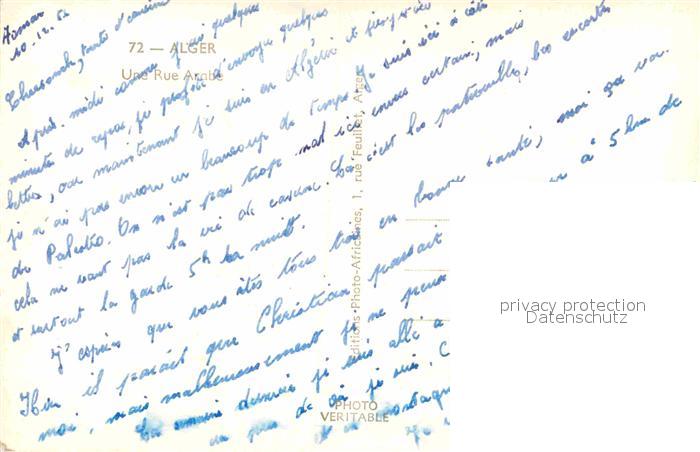 10.12.5
72 — ALGER
Une Rue Arabe
Chers oncle, tante et cousine
Après-midi comme j'ai quelques
minutes de repos, je profite d'envoyer quelques
lettres, car maintenant je suis en Algérie et
je n'ai pas encore eu beaucoup de temps. Je suis ici à côté
de Palestro. On n'est pas trop mal ici encore certain, mais
cela ne vaut pas la vie de caserne. Ici c'est les patrouilles, les escortes
et surtout la garde 5h la nuit.
J'espère que vous êtes tous trois en bonne santé, moi ça va.
Hier il paraît que Christian passait à 5 km de
moi, mais malheureusement je ne peux
La semaine dernière je suis allé à
un peu de où je suis. C
et en montagne
Editions Photo-Africaines, 1, rue Feuillet, Alger
PHOTO
VERITABLE
privacy protection
Datenschutz